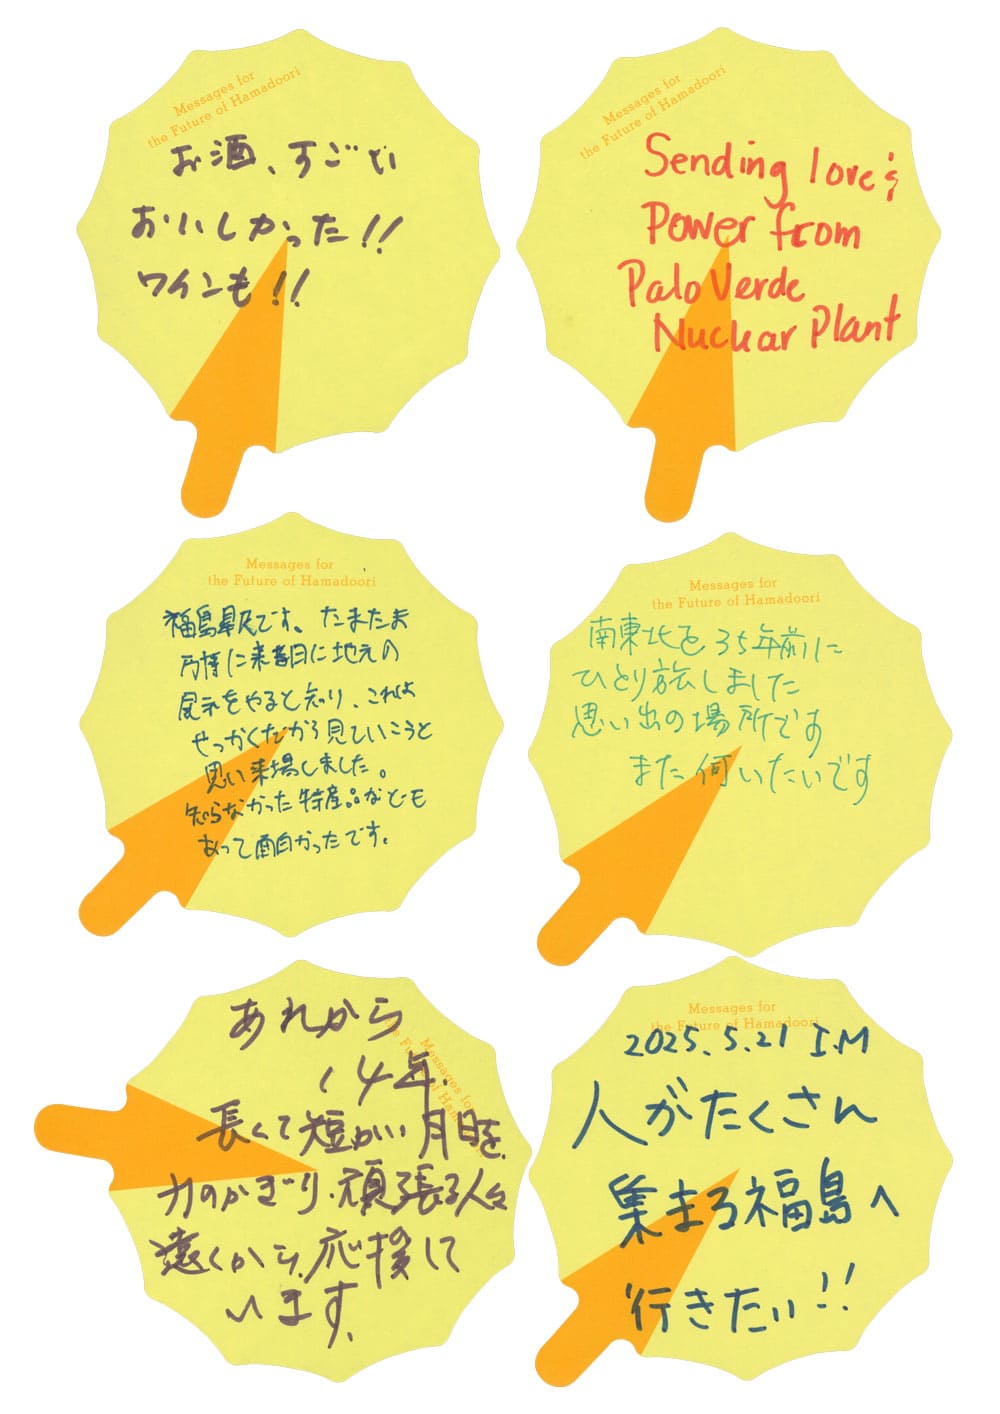 Messages for
the Future of Hamadoori
お酒、すごい
おいしかった!!
ワインも!!
Messages for
the Future of Hamadoori
Sending love &
Power from
Palo Verde
Nuclear Plant
Messages for
the Future of Hamadoori
福島県民です。たまたま
万博に来る日に地元の
展示をやると知り、これは
せっかくだから見ていこうと
思い来場しました。
知らなかった特産品なども
あって面白かったです。
Messages for
the Future of Hamadoori
南東北を35年前に
ひとり旅しました
思い出の場所です
また伺いたいです
Messages for
the Future of Ham
あれから
14年.
長くて短かい月日を.
力のかぎり.頑張る人々
遠くから.応援して
います.
Messages for
the Future of Hamadoori
2025.5.21 I.M
人がたくさん
集まる福島へ
行きたい!!